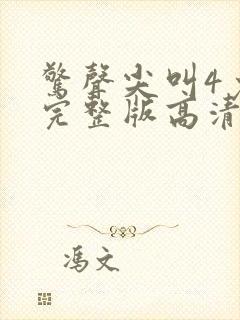 驚聲尖叫4
完整版高清
馮文